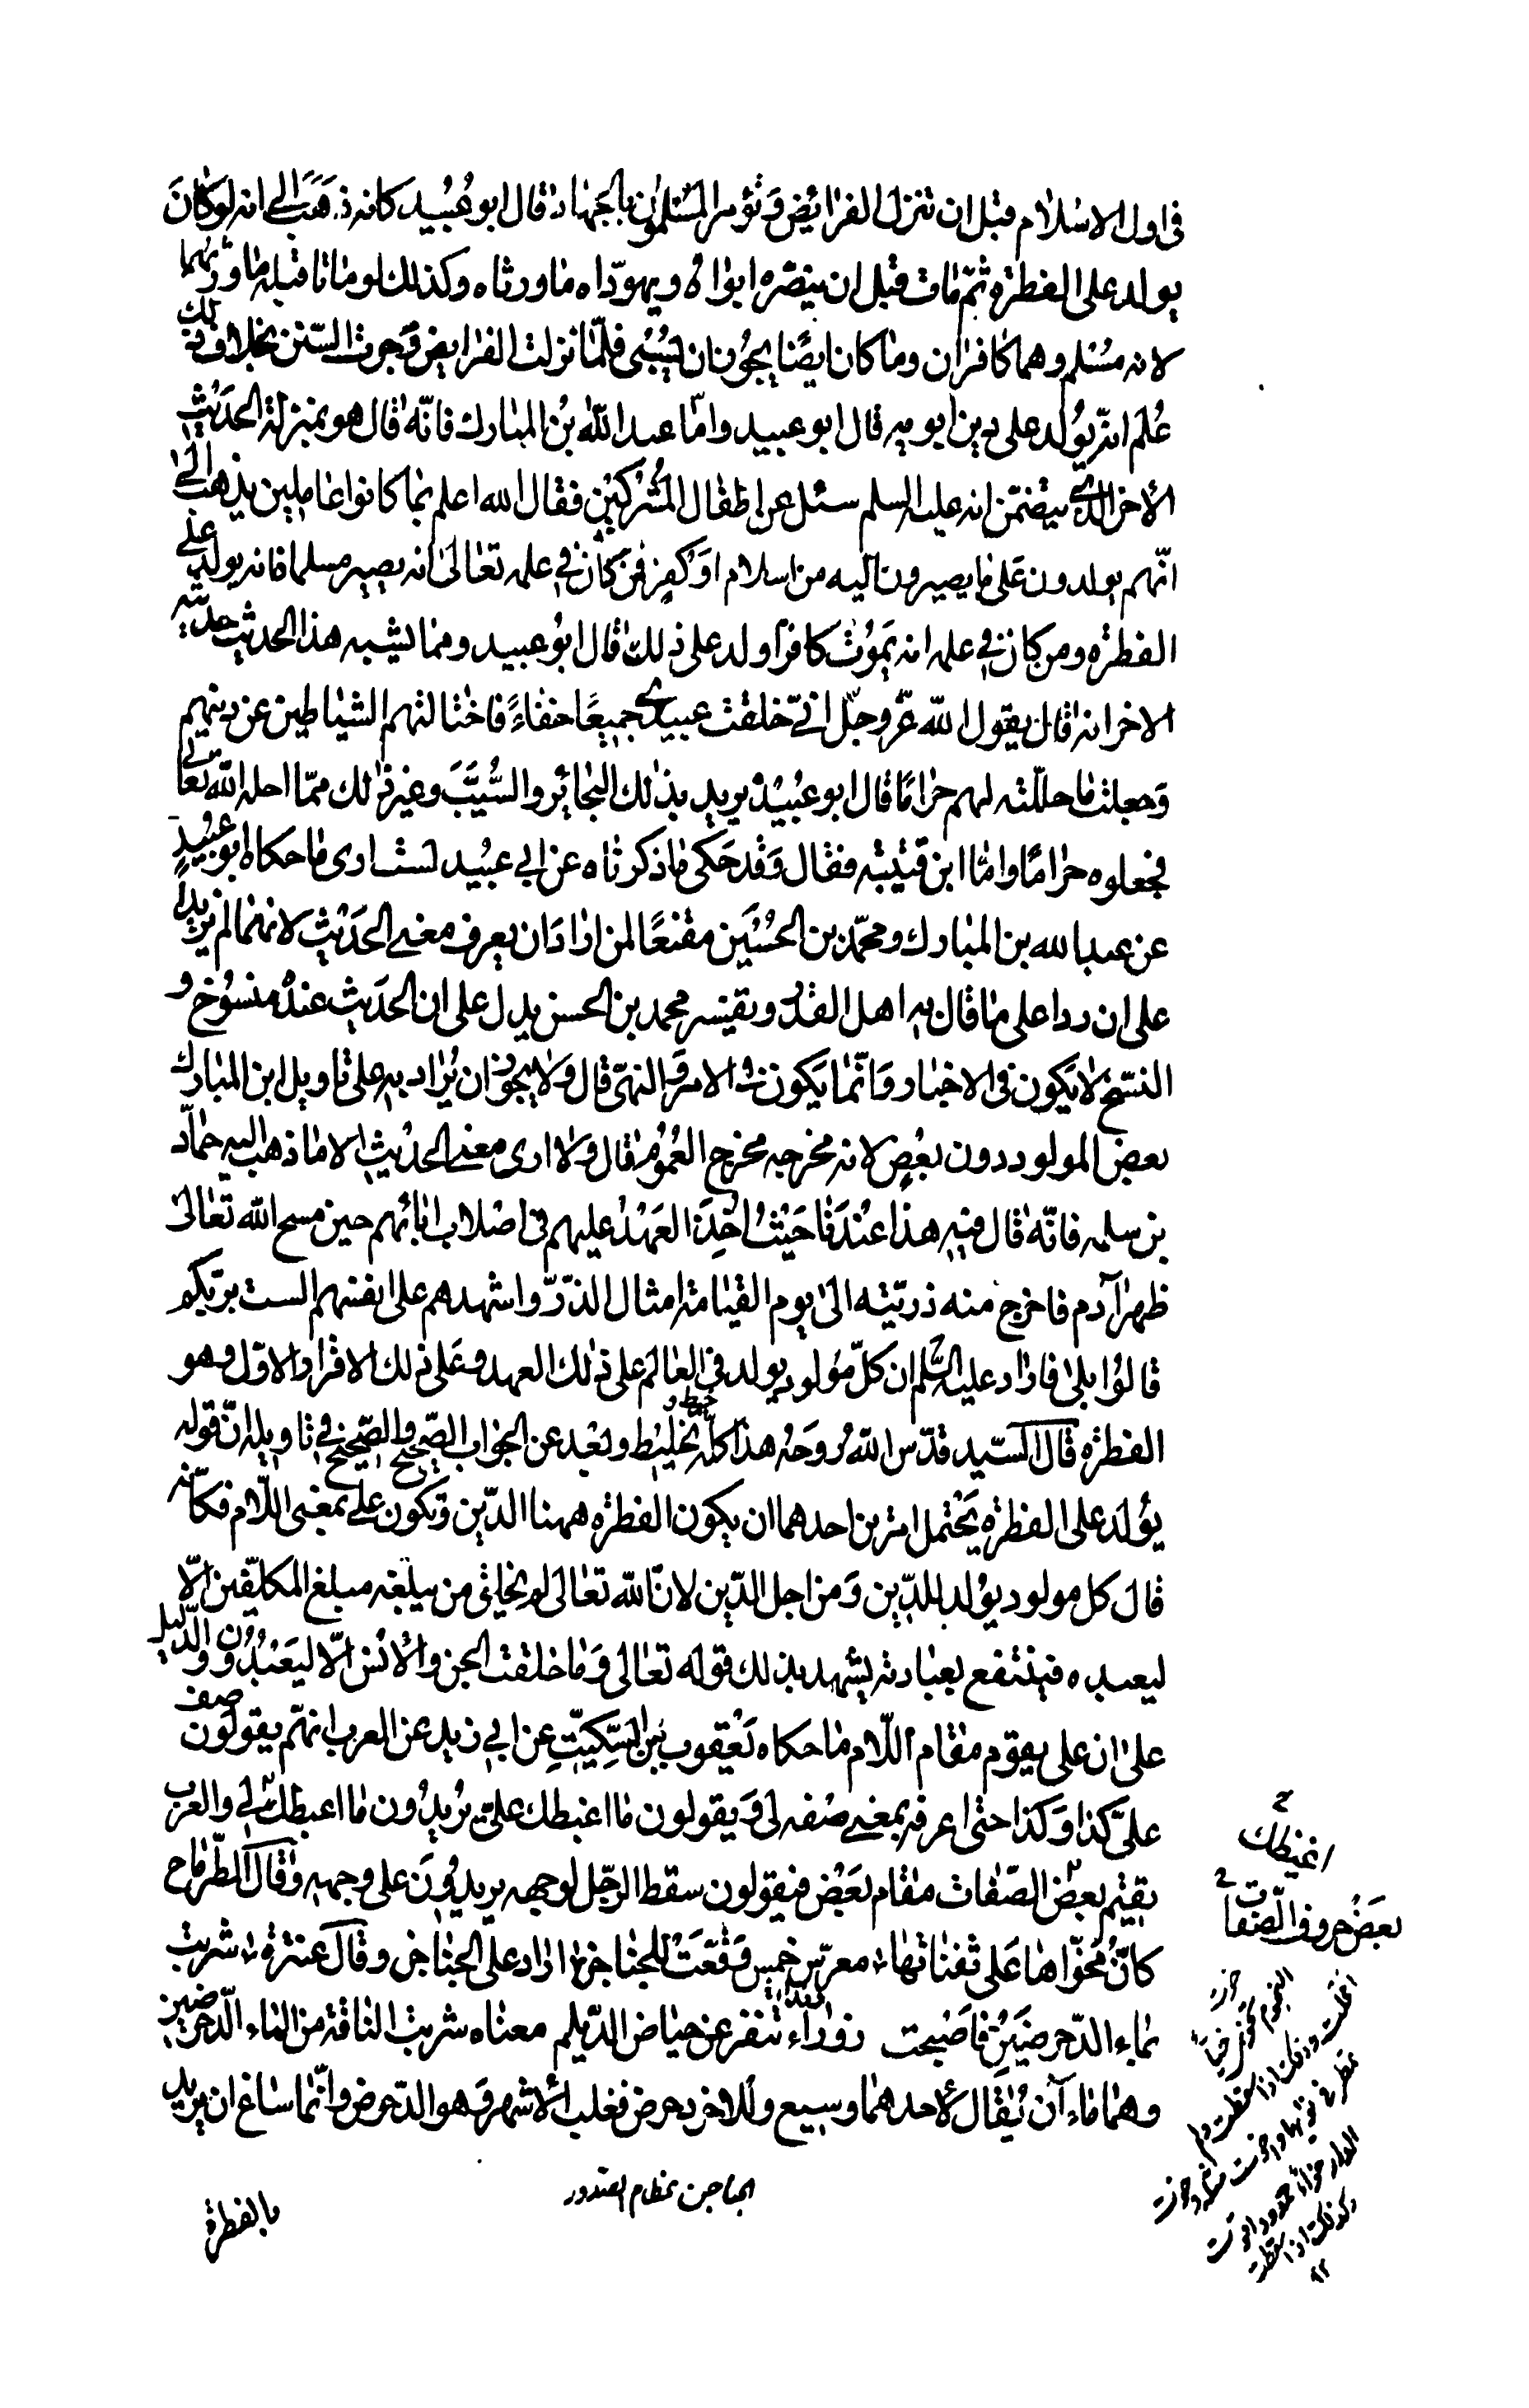 فى اول الاسلام قبل ان تنزل الفرائض و تؤمر المسلمون بالجهاد قال ابو عبيد كانه ذهب الى انه لو كان
يولد على الفطرة ثم مات قبل ان ينصره ابواه و يهوداه ما ورثاه وكذلك لو ماتا قبله ما ورثهما
لانه مسلم وهما كافران وما كان ايضا يجوز ان يسبى فلما نزلت الفرايض و جرت السنن بخلاف ذلك
علم انه يولد على دين ابويه قال ابو عبيد واما عبد الله بن المبارك فانه قال هو بمنزلة الحديث
الاخر الذى يتضمن انه عليه السلم سئل عن اطفال المشركين فقال الله اعلم بما كانوا عاملين يذهب الى
انهم يولدون على ما يصيرون اليه من اسلام او كفر فمن كان فى علمه تعالى انه يصير مسلما فانه يولد على
الفطرة ومن كان فى علمه انه يموت كافرا ولد على ذلك قال ابو عبيد ومما يشبه هذا الحديث حديثه
الاخر انه قال يقول الله عز وجل انى خلقت عبيدى جميعا حنفاء فاختالتهم الشياطين عن دينهم
وجعلت ما حللته لهم حراما قال ابو عبيد يريد بذلك البحائر والسيب وغير ذلك مما احله الله تعالى
فجعلوه حراما واما ابن قتيبة فقال وقد حكى ما ذكرناه عن ابى عبيد لست ارى ما حكاه ابو عبيد
عن عبد الله بن المبارك ومحمد بن الحسين مقنعا لمن اراد ان يعرف معنى الحديث لانهما لم يزيدا
على ان ردا على ما قال به اهل القدر وتفسير محمد بن الحسن يدل على ان الحديث عنده منسوخ و
النسخ لا يكون فى الاخبار وانما يكون فى الامر والنهى قال ولا يجوز ان يراد به على تاويل ابن المبارك
بعض المولود دون بعض لانه مخرجه مخرج العموم قال ولا ارى معنى الحديث الا ما ذهب اليه حماد
بن سلمه فانه قال فيه هذا عندنا حيث اخذ العهد عليهم فى اصلاب ابائهم حين مسح الله تعالى
ظهر آدم فاخرج منه ذريته الى يوم القيامة امثال الذر واشهدهم على انفسهم الست بربكم
قالوا بلى فاراد عليه السلم ان كل مولود يولد فى العالم على ذلك العهد وعلى ذلك الاقرار الاول وهو
الفطرة قال السيد قدس الله روحه هذا كله خبط و تخليط وبعد عن الجواب الصحيح والصحيح فى تاويله ان قوله
يولد على الفطرة يحتمل امرين احدهما ان يكون الفطرة ههنا الدين وتكون على بمعنى اللام فكانه
قال كل مولود يولد للدين ومن اجل الدين لان الله تعالى لم يخلق من يبلغه مبلغ المكلفين الا
ليعبده فينتفع بعبادته يشهد بذلك قوله تعالى وما خلقت الجن والانس الا ليعبدون والدليل
على ان على يقوم مقام اللام ما حكاه يعقوب بن السكيت عن ابى زيد عن العرب انهم يقولون صف
على كذا وكذا حتى اعرفه بمعنى صفه لى ويقولون ما اغبطك على يريدون ما اغبطك لى والعرب
يقيم بعض الصفات مقام بعض فيقولون سقط الرجل لوجهه يريدون على وجهه وقال الطرماح
كان مخواها على ثفناتها معرس خمس وقعت للجناجن اراد على الجناجن وقال عنترة شربت
بماء الدحرضين فاصبحت زوراء تنفر عن حياض الديلم معناه شربت الناقة من الماء الدحرضين
وهما ماءآن يقال لاحدهما وسيع وللاخر دحرض فغلب الاشهر وهو الدحرض وانما ساغ ان يريد
اغيظك
بعض حروف الصفات
الجناجن عظام الصدور
بالفطرة